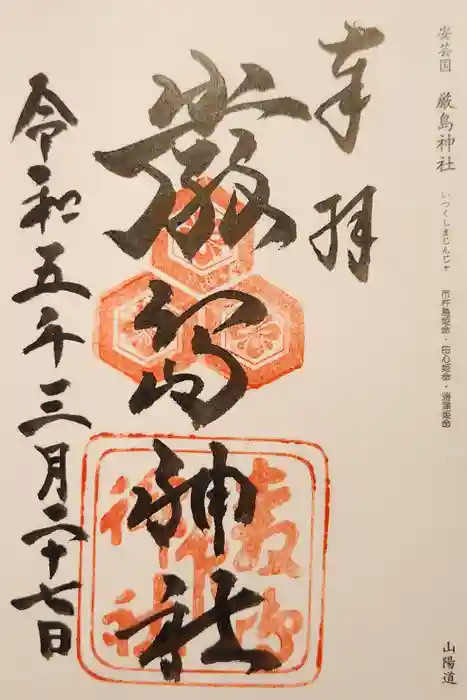 安芸国 厳島神社 いつくしまじんじゃ 市杵島姫命・田心姫命・湍津姫命
山陽道
奉拝
厳島神社
令和五年三月二十七日
厳島神社